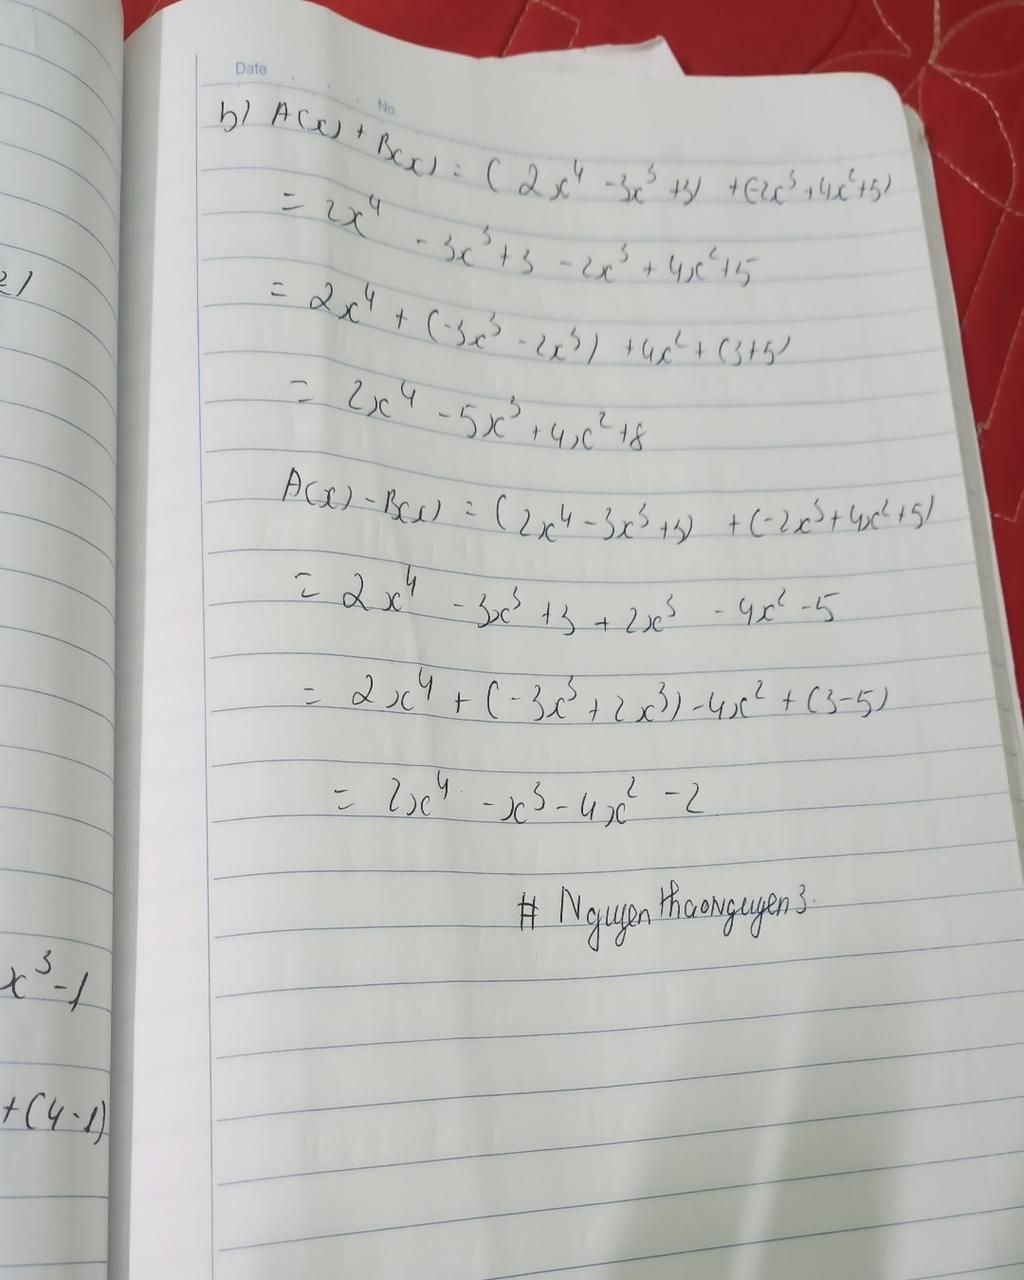 Date
No.
b) A(x) + B(x) = (2x⁴ -3x³ +3) + (-2x³ +4x²+5)
= 2x⁴ -3x³+3 -2x³ +4x²+5
= 2x⁴ + (-3x³ -2x³) +4x² + (3+5)
= 2x⁴ -5x³ +4x²+8
A(x) - B(x) = (2x⁴ -3x³ +3) + (-2x³+4x²+5)
= 2x⁴ -3x³ +3 + 2x³ -4x² -5
= 2x⁴ + (-3x³ + 2x³) -4x² + (3-5)
= 2x⁴ -x³ -4x² -2
# Nguyenthaonguyen3.
x³-1
+(4-1)